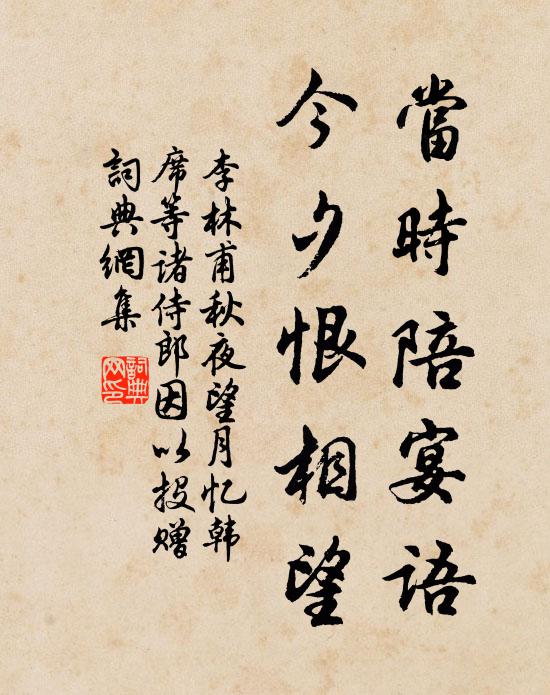 當時陪宴語
今夕恨相望
李林甫秋夜望月忆韩
席等诸侍郎因以投赠
詞典網集
詞典
网印